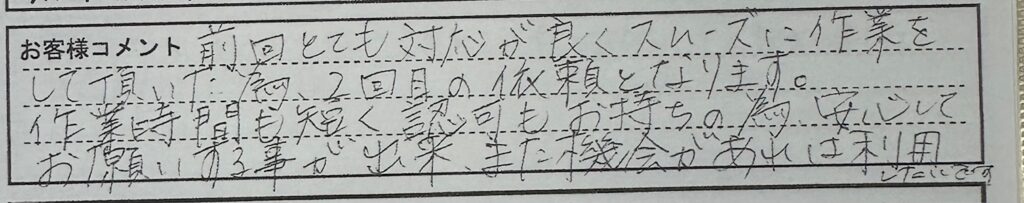 お客様コメント 前回とても対応が良くスムーズに作業を
して頂いた為、2回目の依頼となります。
作業時間も短く認可もお持ちの為、安心して
お願いする事が出来、また機会があれば利用
したいです